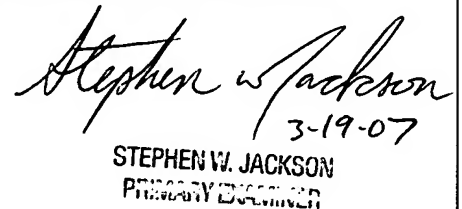 Stephen W Jackson
3-19-07
STEPHEN W. JACKSON
PRIMARY EXAMINER